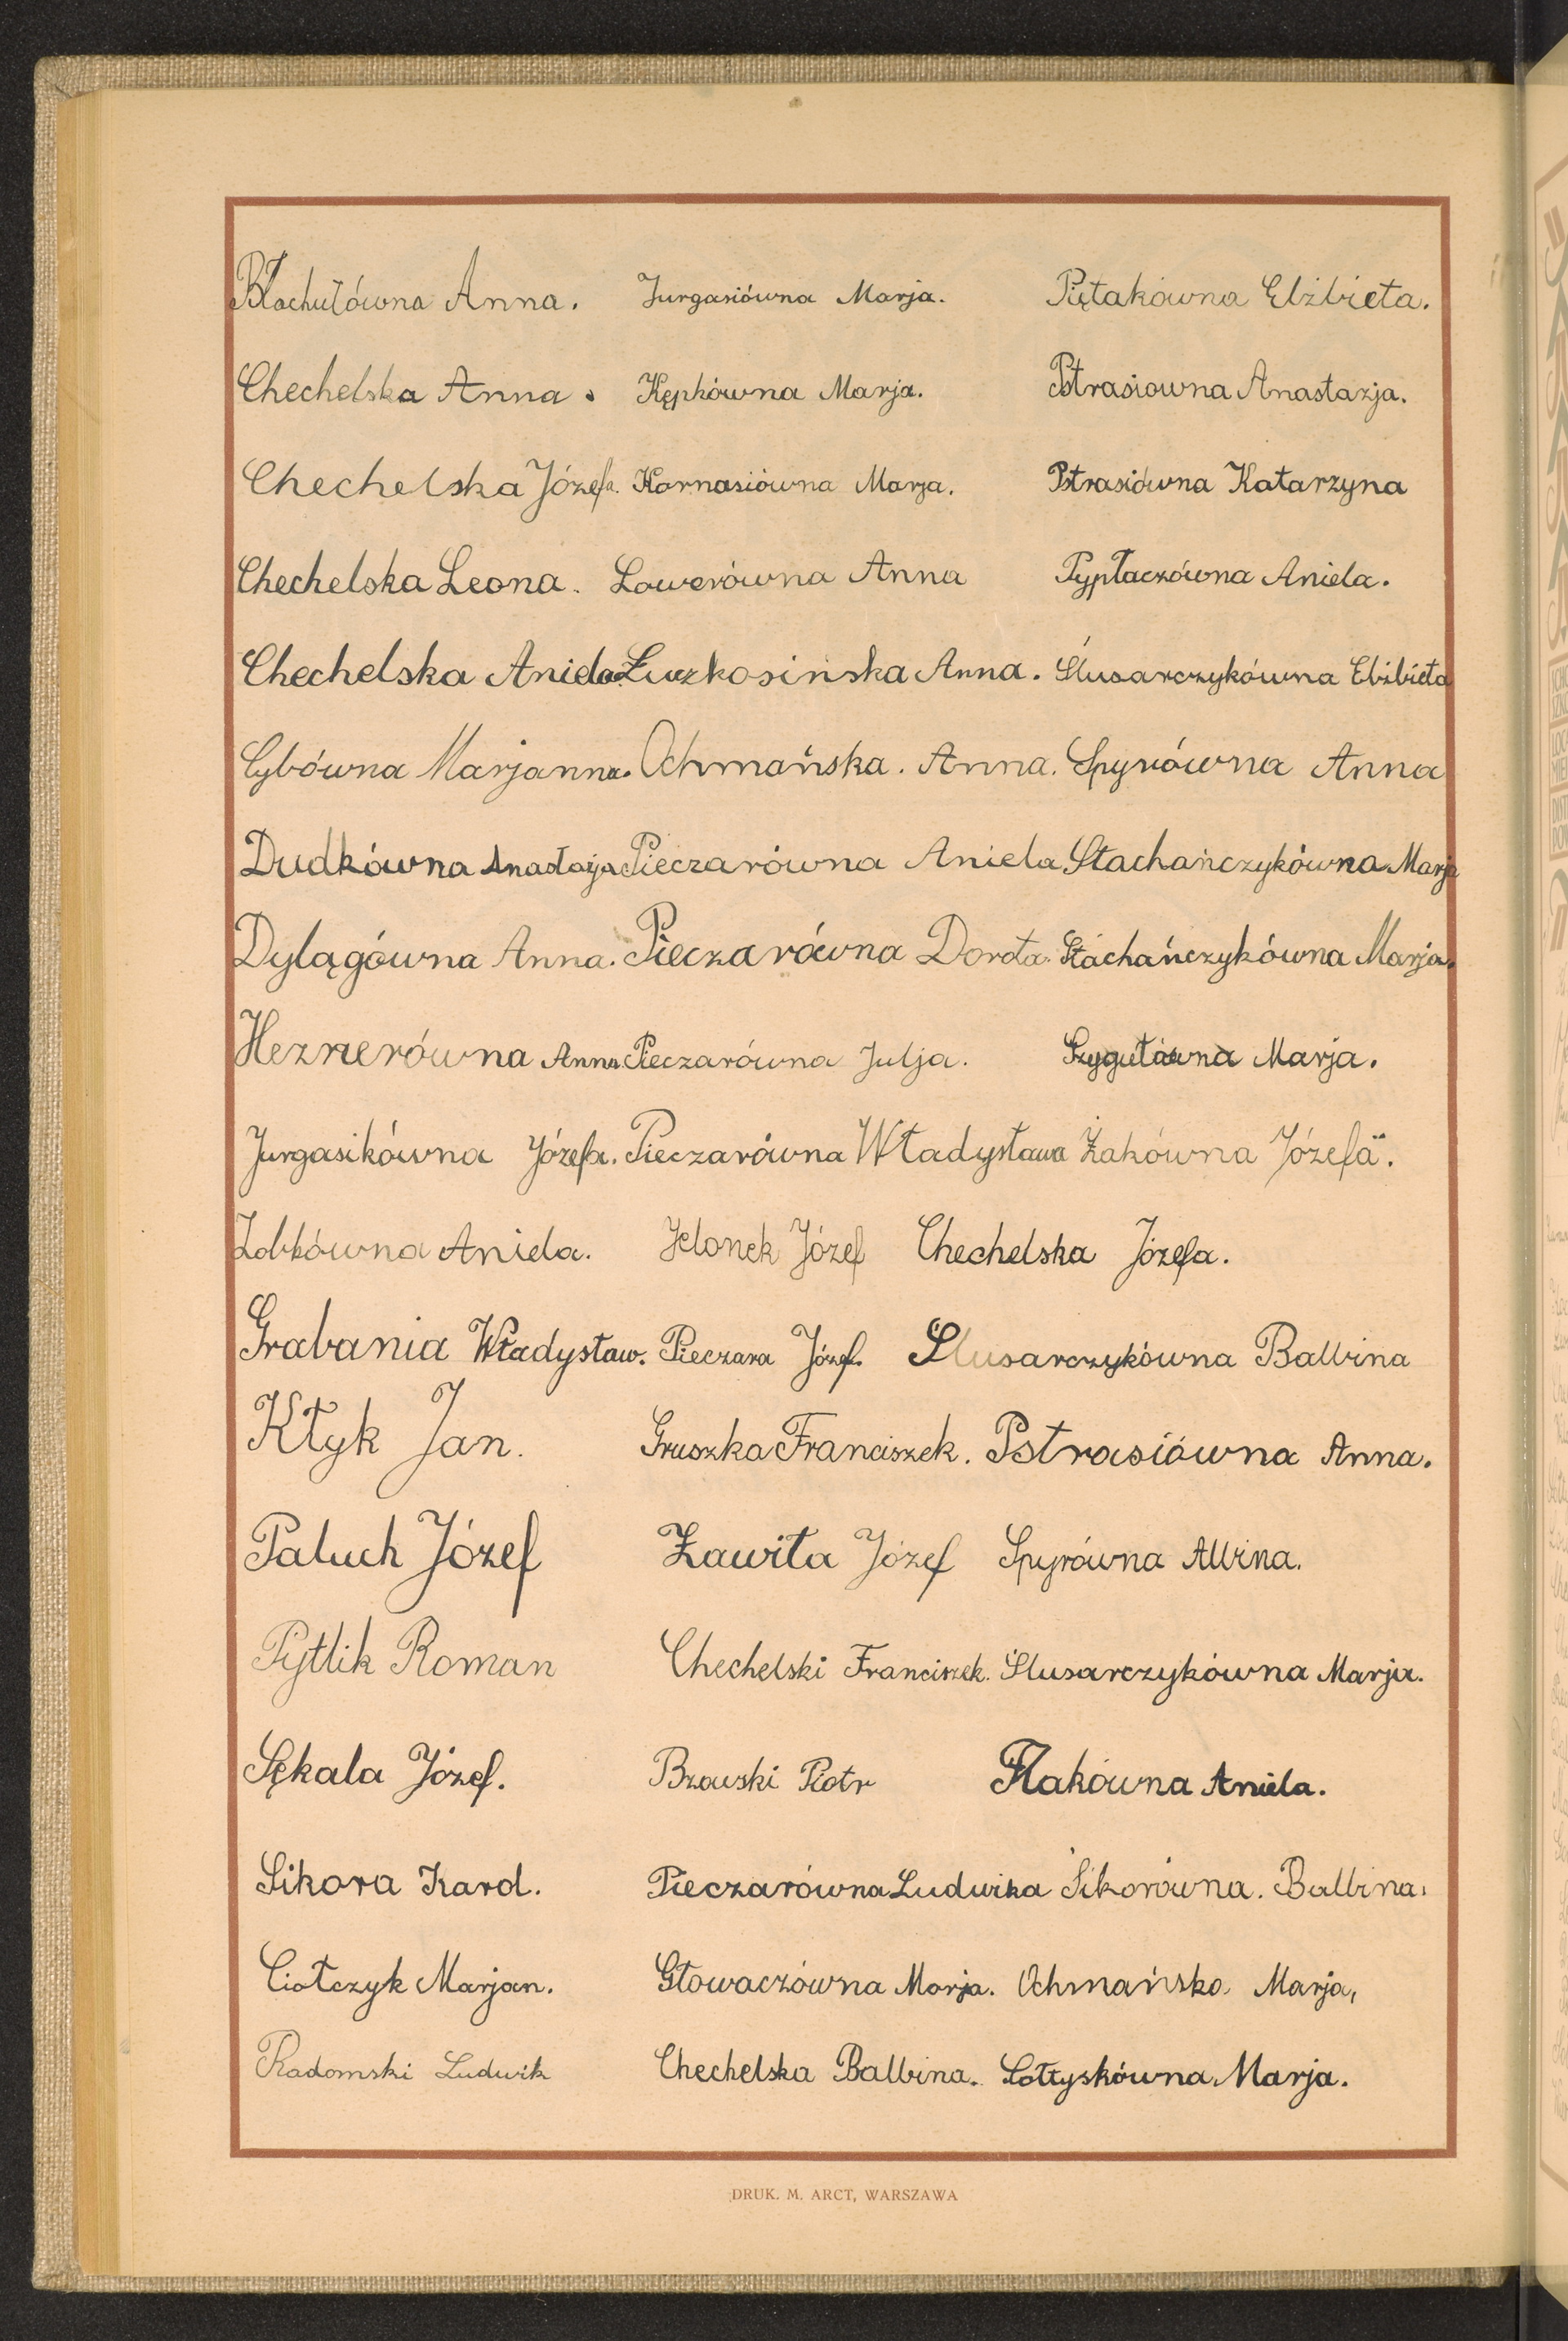 Błachutówna Anna. Jurgasiówna Marja. Piętakówna Elżbieta.
Chechelska Anna. Kępkówna Marja. Pstrasiowna Anastazja.
Chechelska Józefa. Karnasiówna Marja. Pstrasiówna Katarzyna
Chechelska Leona. Lowerówna Anna Pypłaczówna Aniela.
Chechelska Aniela. Łuszkosińska Anna. Ślusarczykówna Elżbieta
Cybówna Marjanna. Ochmańska. Anna. Spyrówna Anna
Dudkówna Anastazja Pieczarówna Aniela Stachańczykówna Marja
Dylągówna Anna. Pieczarówna Dorota. Stachańczykówna Marja.
Heznerówna Anna. Pieczarówna Julja. Szygułówna Marja.
Jurgasikówna Józefa. Pieczarówna Władysława Żakówna Józefa.
Lobkówna Aniela. Jelonek Józef Chechelska Józefa.
Grabania Władysław. Pieczara Józef. Ślusarczykówna Balbina
Kłyk Jan. Gruszka Franciszek. Pstrasiówna Anna.
Paluch Józef Zawiła Józef Spyrówna Albina.
Pytlik Roman Chechelski Franciszek. Ślusarczykówna Marja.
Sękala Józef. Bzowski Piotr Flakówna Aniela.
Sikora Karol. Pieczarówna Ludwika Sikorówna. Balbina.
Ciołczyk Marjan. Głowaczówna Marja. Ochmańska Marja,
Radomski Ludwik Chechelska Balbina. Sołtyskówna Marja.
DRUK. M. ARCT, WARSZAWA